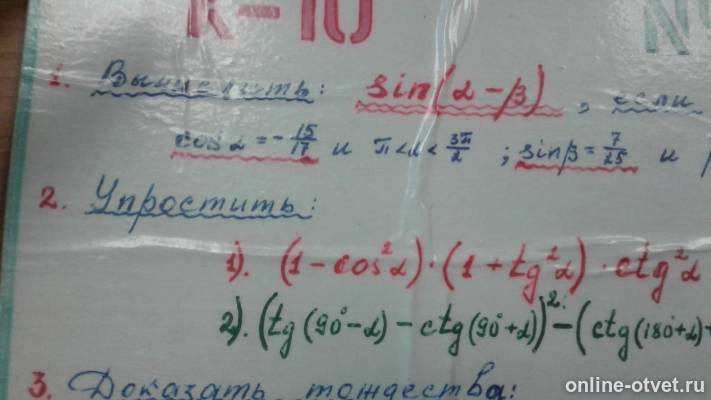 К-10 №
1. Вычислить: sin(α-β), если
cosα = -15/17 и π<α<3π/2 ; sinβ = 7/25 и
2. Упростить:
1). (1-cos²α)·(1+tg²α)·ctg²α
2). (tg(90°-α)-ctg(90°+α))²-(ctg(180°+α)+
3. Доказать тождества:
online-otvet.ru